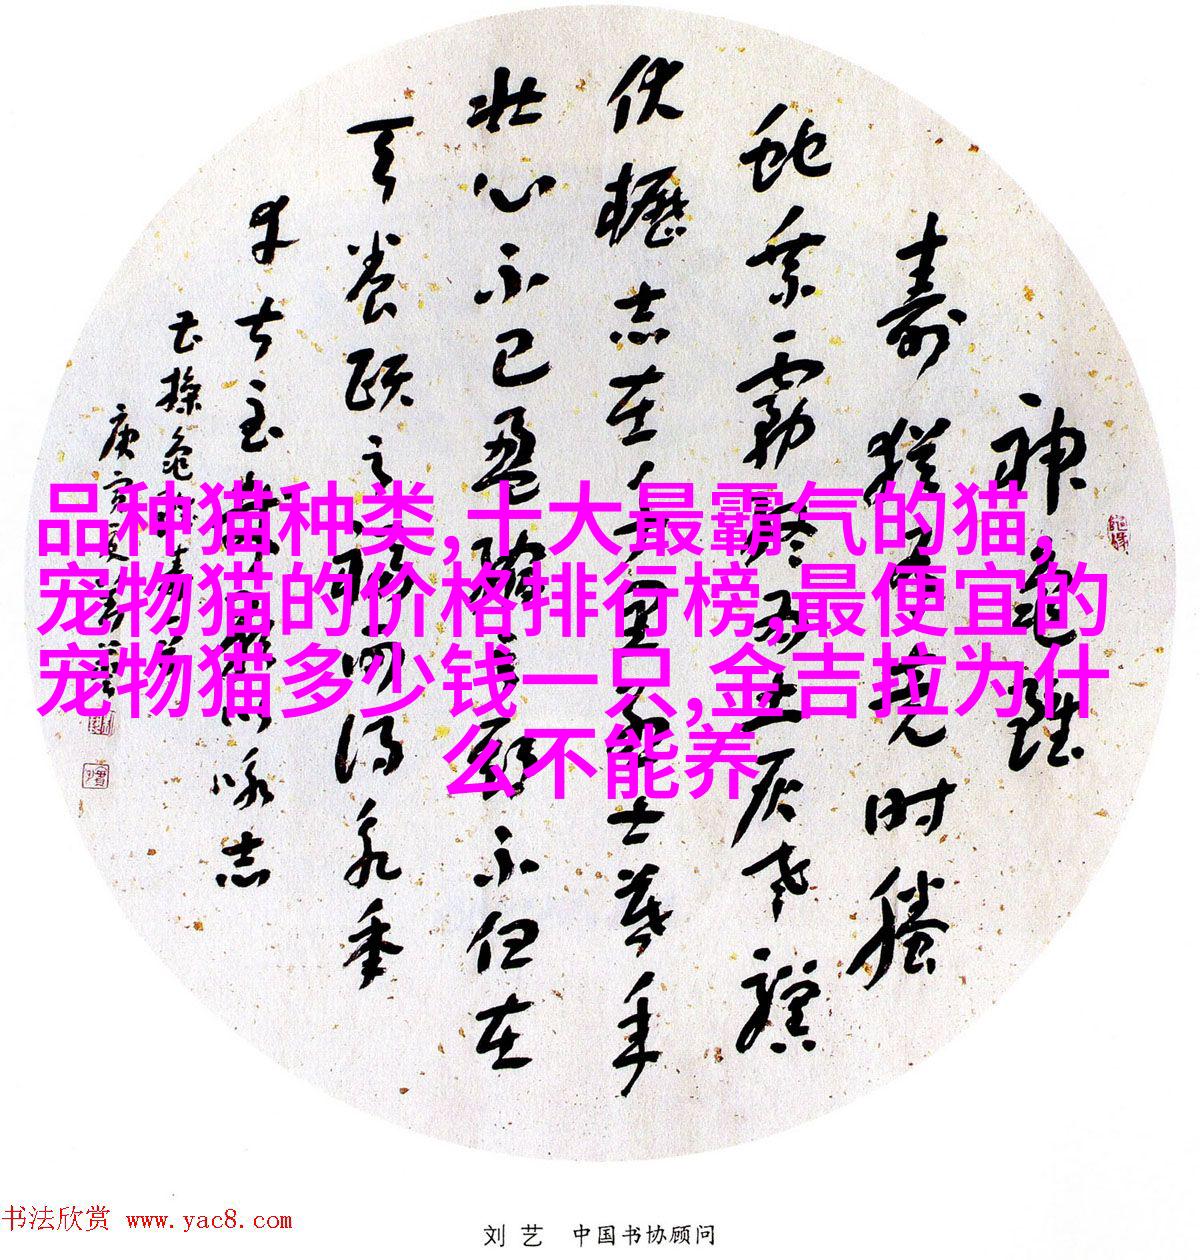 神龜雖
壽猶有竟时騰
蛇乘霧終为土灰老驥
伏櫪志在千里烈士暮年
壯心不已盈縮之期不但在
天養頤之福可得永年
幸甚至哉歌以咏志
曹操龜雖壽
庚寅夏劉藝
品种猫种类,十大最霸气的猫,
宠物猫的价格排行榜,最便宜的
宠物猫多少钱一只,金吉拉为什
么不能养
书法欣赏 www.yac8.com
刘艺 中国书协顾问